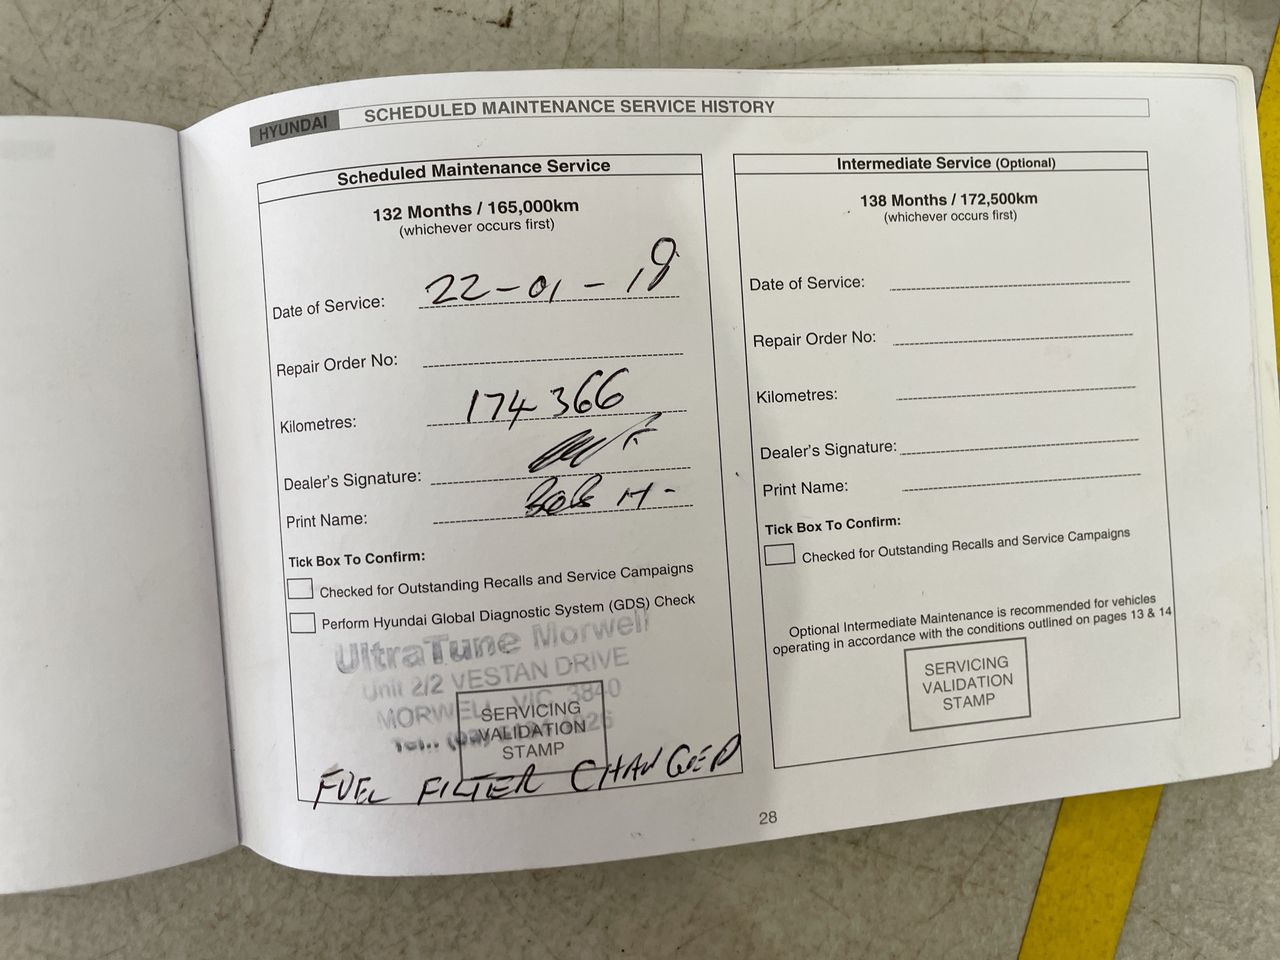 HYUNDAI
SCHEDULED MAINTENANCE SERVICE HISTORY
Scheduled Maintenance Service
132 Months / 165,000km
(whichever occurs first)
Date of Service: 22-01-18
Repair Order No:
Kilometres: 174366
Dealer's Signature:
Print Name:
Tick Box To Confirm:
Checked for Outstanding Recalls and Service Campaigns
Perform Hyundai Global Diagnostic System (GDS) Check
UltraTune Morwell
Unit 2/2 VESTAN DRIVE
MORWELL VIC 3840
SERVICING
VALIDATION
STAMP
FUEL FILTER CHANGED
Intermediate Service (Optional)
138 Months / 172,500km
(whichever occurs first)
Date of Service:
Repair Order No:
Kilometres:
Dealer's Signature:
Print Name:
Tick Box To Confirm:
Checked for Outstanding Recalls and Service Campaigns
Optional Intermediate Maintenance is recommended for vehicles
operating in accordance with the conditions outlined on pages 13 & 14
SERVICING
VALIDATION
STAMP
28